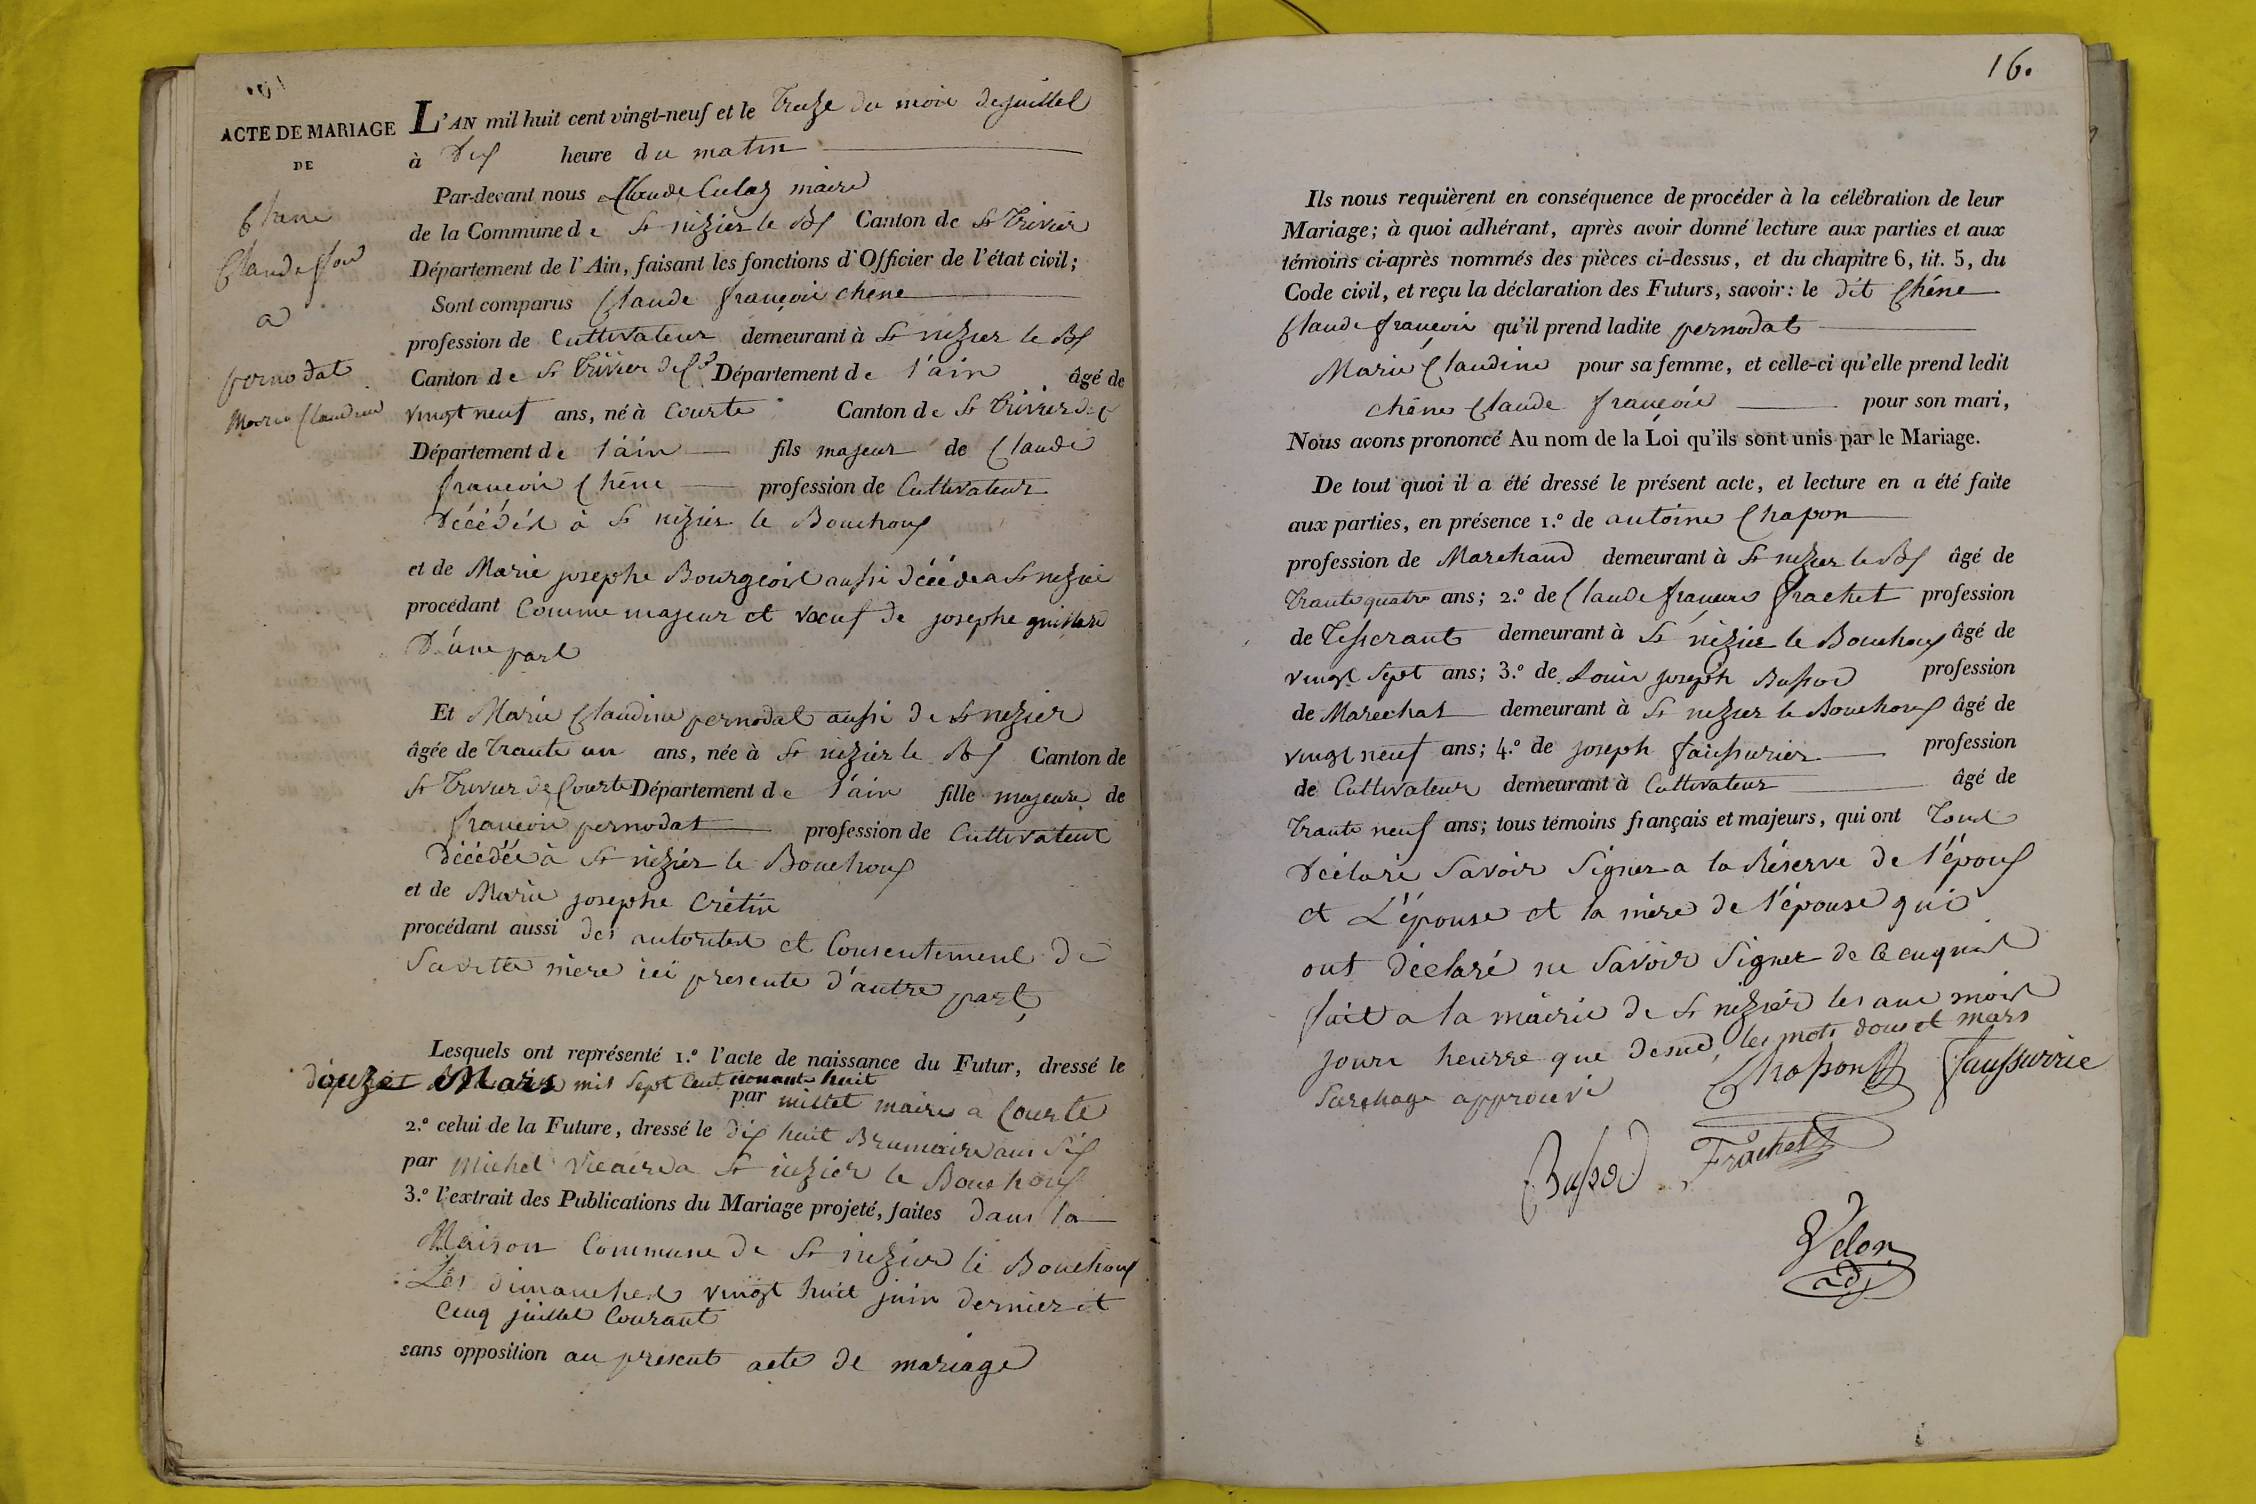 ACTE DE MARIAGE
DE
Chene
Claude fois
a
pernodat
Marie Claudine
L'AN mil huit cent vingt-neuf et le Traize du mois de juillet
à Dix heure du matin
Par-devant nous Claude Culaz maire
de la Commune de St nizier le Bx Canton de St Trivier
Département de l'Ain, faisant les fonctions d'Officier de l'état civil;
Sont comparus Claude françois chêne
profession de Cultivateur demeurant à St nizier le Bx
Canton de St Trivier de Cs Département de l'ain âgé de
vingt neuf ans, né à Courte Canton de St Trivier de C
Département de l'ain fils majeur de Claude
françois Chêne profession de Cultivateur
Décédés à St nizier le Bouchoux
et de Marie josephe Bourgeois aussi décédea St nizie
procédant Comme majeur et vœuf de josephe guillard
D'une part
Et Marie Claudine pernodat aussi de St nezier
âgée de Traute un ans, née à St nizier le Bx Canton de
St Trivier de Courte Département de l'ain fille majeure de
françois pernodat profession de Cultivateur
Décédée à St nizier le Bouchoux
et de Marie josephe Crétin
procédant aussi des autorites et Consentement de
Saditte mère ici presente d'autre part
Lesquels ont représenté 1.º l'acte de naissance du Futur, dressé le
douze Mars mil Sept Cent nonante huit
par millet maire a Courte
2.º celui de la Future, dressé le dix huit Brumaire an Six
par Michel vicaire a St nizier le Bouchoux
3.º l'extrait des Publications du Mariage projeté, faites dans la
Maison Commune de St nizier le Bouchoux
Les dimanches vingt huit juin dernier et
Cinq juillet Courant
sans opposition au présent acte de mariage
16.
Ils nous requièrent en conséquence de procéder à la célébration de leur
Mariage; à quoi adhérant, après avoir donné lecture aux parties et aux
témoins ci-après nommés des pièces ci-dessus, et du chapitre 6, tit. 5, du
Code civil, et reçu la déclaration des Futurs, savoir: le dit Chêne
Claude françois qu'il prend ladite pernodat
Marie Claudine pour sa femme, et celle-ci qu'elle prend ledit
chêne Claude françois pour son mari,
Nous avons prononcé Au nom de la Loi qu'ils sont unis par le Mariage.
De tout quoi il a été dressé le présent acte, et lecture en a été faite
aux parties, en présence 1.º de antoine Chapon
profession de Marchand demeurant à St nizier le Bx âgé de
Traute quatre ans; 2.º de Claude francois frachet profession
de Tisserant demeurant à St nizier le Bouchoux âgé de
vingt Sept ans; 3.º de Louis joseph Bussod profession
de Marechal demeurant à St nizier le Bouchoux âgé de
vingt neuf ans; 4.º de joseph faussurier profession
de Cultivateur demeurant à Cultivateur âgé de
Traute neuf ans; tous témoins français et majeurs, qui ont Tous
Déclaré Savoir Signer a la Réserve de l'époux
et L'épouse et la mère de l'épouse qui
ont déclaré ne Savoir Signer de ce enquis
fait a la mairie de St nizier les ans mois
jours heurre que dessus, les mots douze et mars
Surchage approuvé
Chapon faussurrie
Bussod Frachet
Velon